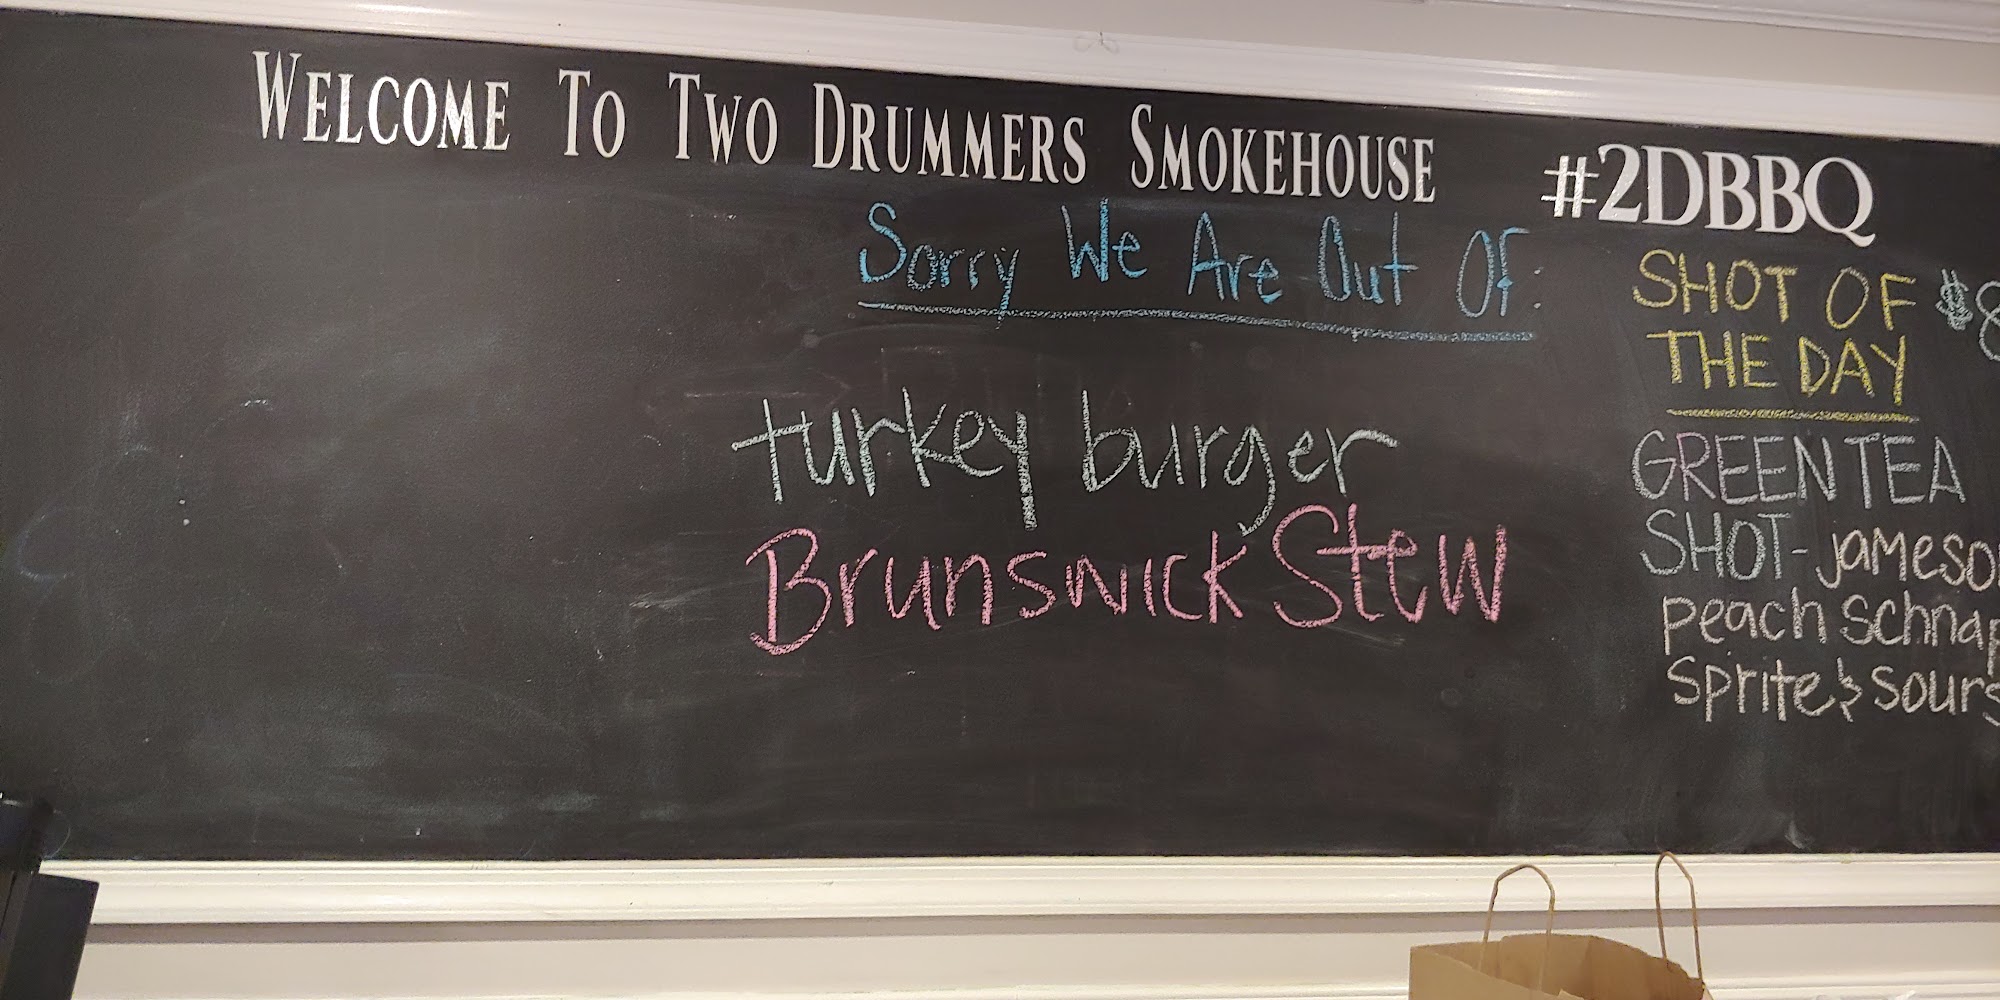 WELCOME TO TWO DRUMMERS SMOKEHOUSE
#2DBBQ
Sorry We Are Out Of:
turkey burger
Brunswick Stew
SHOT OF
THE DAY
$8
GREEN TEA
SHOT - Jameson
Peach Schnap
Sprite & Sours